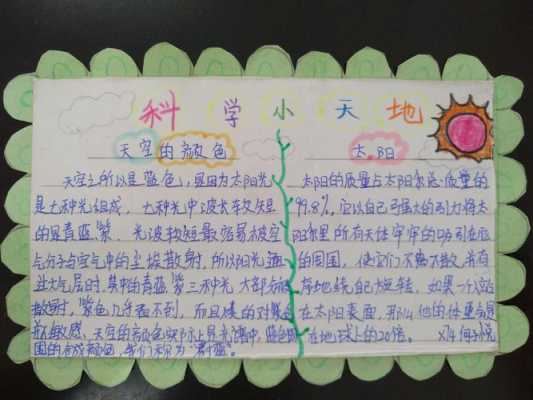 科学小天地
天空的颜色
天空之所以是蓝色,是因为太阳光
是七种光组成,七种光中波长较短
的是青蓝紫,光波较短最容易被空
气分子与空气中的尘埃散射,所以阳光通
过大气层时,其中的青蓝紫三种光大部分被
散射,紫色几乎看不到,而且
敏感。天空的颜色实际上是光谱中蓝色
国的合成颜色,我们称为"蔚蓝"。
太阳
太阳的质量占太阳系总质量的
99.8%,它以自己强大的引力将太
阳系里所有天体牢牢的吸引在
的周围,使它们不离不散,有
地绕自己旋转,如果一个
在太阳表面,那么他的体重
在地球上的20倍。